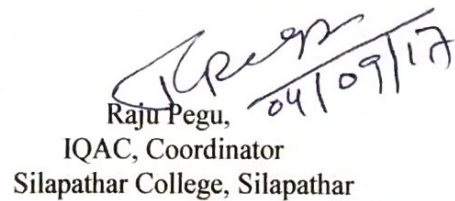 Rpegu
04/09/17
Raju Pegu,
IQAC, Coordinator
Silapathar College, Silapathar